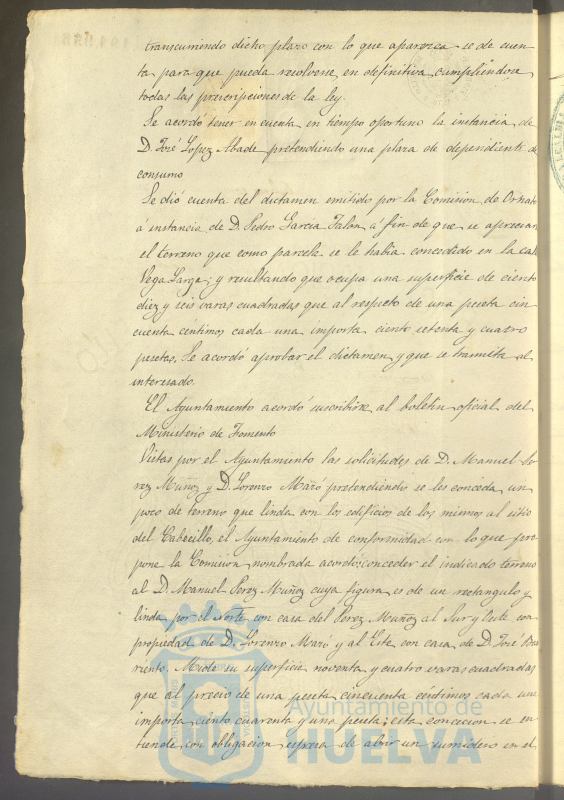 transcurriendo dicho plazo con lo que aparezca se de cuen-
ta para que pueda resolverse en definitiva cumpliendose
todas las prescripciones de la ley.
Se acordó tener en cuenta en tiempo oportuno la instancia de
D. José Lopez Abade pretendiendo una plaza de dependiente de
consumo
Se dió cuenta del dictamen emitido por la Comision de Ornato
á instancia de D. Pedro Garcia Talon á fin de que se apreciara
el terreno que como parcela se le habia concedido en la calle
Vega Larga; y resultando que ocupa una superficie de ciento
diez y seis varas cuadradas que al respecto de una peseta cin
cuenta centimos cada una importa ciento setenta y cuatro
pesetas, Se acordó aprobar el dictamen y que se tramita al
interesado.
El Ayuntamiento acordó suscribirse al boletin oficial del
Ministerio de Fomento
Vistas por el Ayuntamiento las solicitudes de D. Manuel Pe
rez Muñoz y D. Lorenzo Maró pretendiendo se les conceda un
poco de terreno que linda con los edificios de los mismos al sitio
del Cabecillo, el Ayuntamiento de conformidad con lo que pro
pone la Comision nombrada acordó: conceder el indicado terreno
al D. Manuel Perez Muñoz cuya figura es de un rectangulo y
linda por el Norte con casa del Perez Muñoz al Sur y Oeste con
propiedad de D. Lorenzo Maró y al Este con casa de D. José Ba
rriento. Mide su superficie noventa y cuatro varas cuadradas
que al precio de una peseta cincuenta centimos cada una
importa ciento cuarenta y una peseta; esta concecion se en
tiende con obligacion espresa de abrir un sumidero en el
Ayuntamiento de
HUELVA